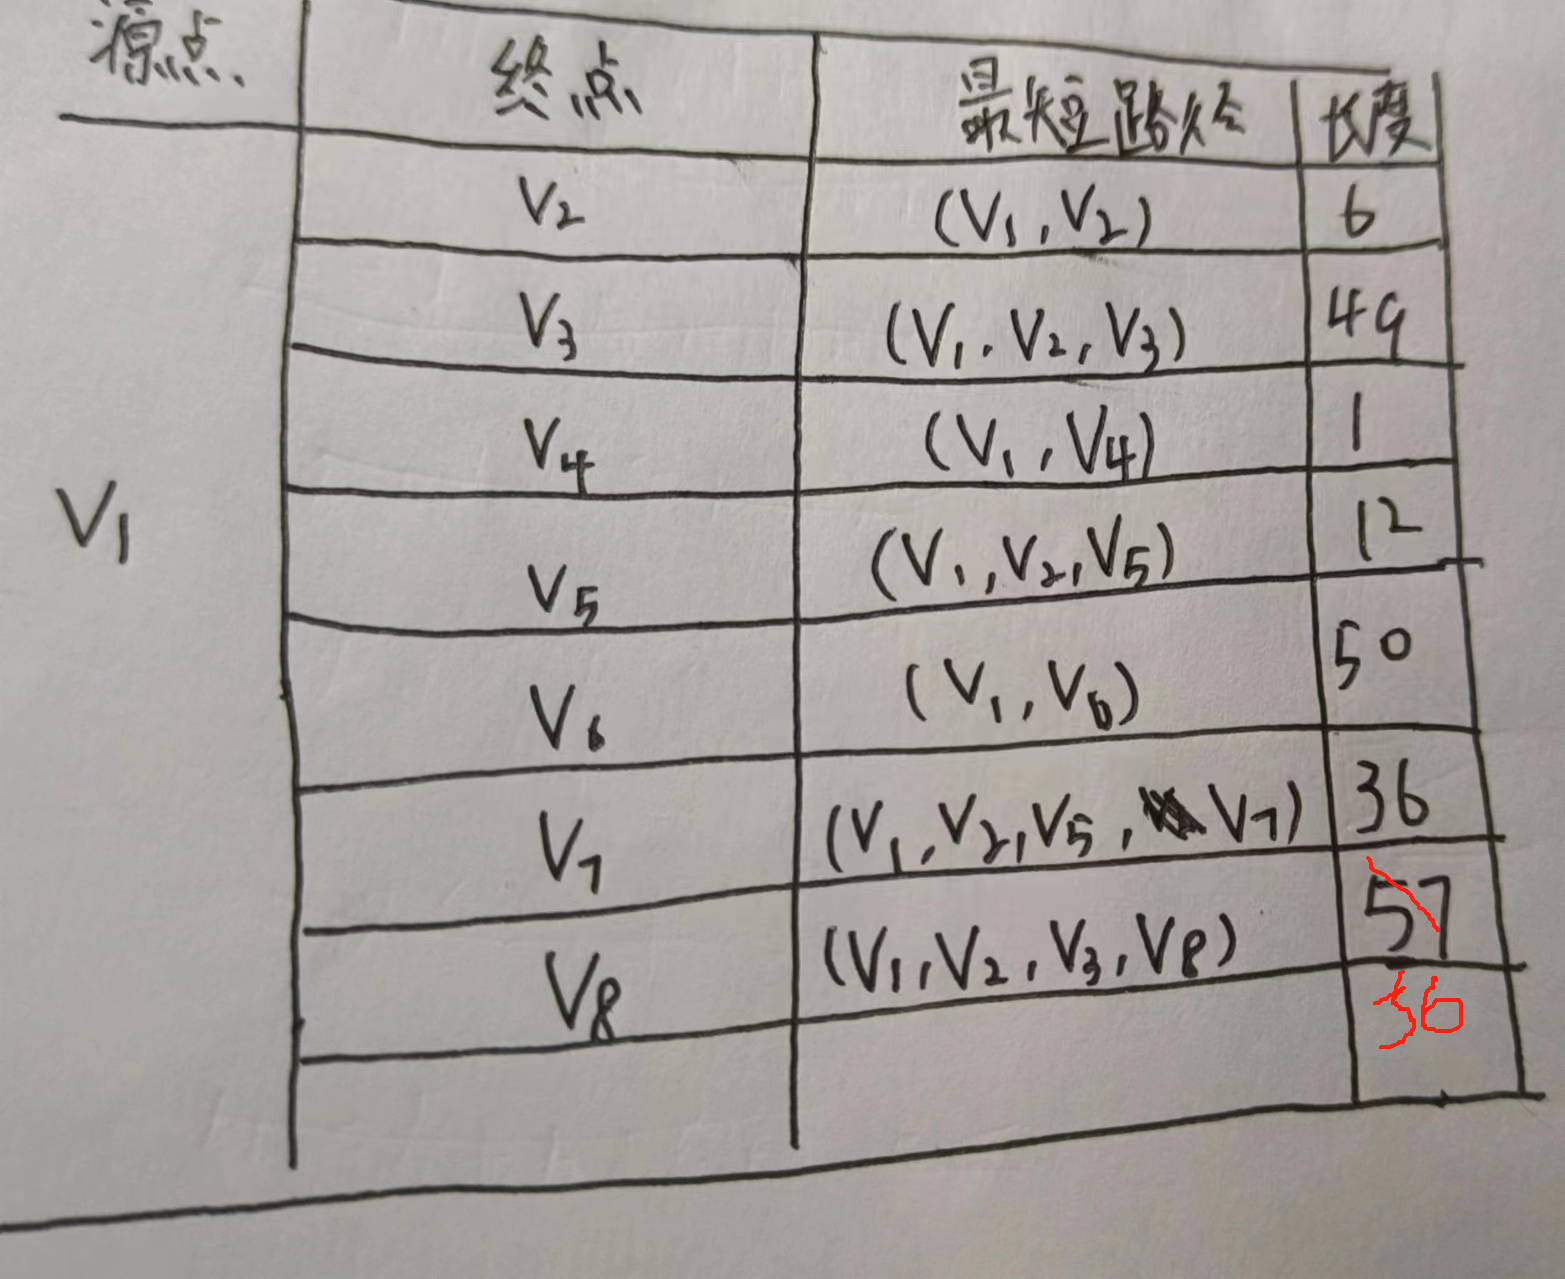 源点 终点 最短路径 长度
V2 (V1, V2) 6
V3 (V1. V2, V3) 49
V4 (V1, V4) 1
V1
V5 (V1, V2, V5) 12
V6 (V1, V6) 50
V7 (V1, V2, V5, V7) 36
V8 (V1, V2, V3, V8) 57
36